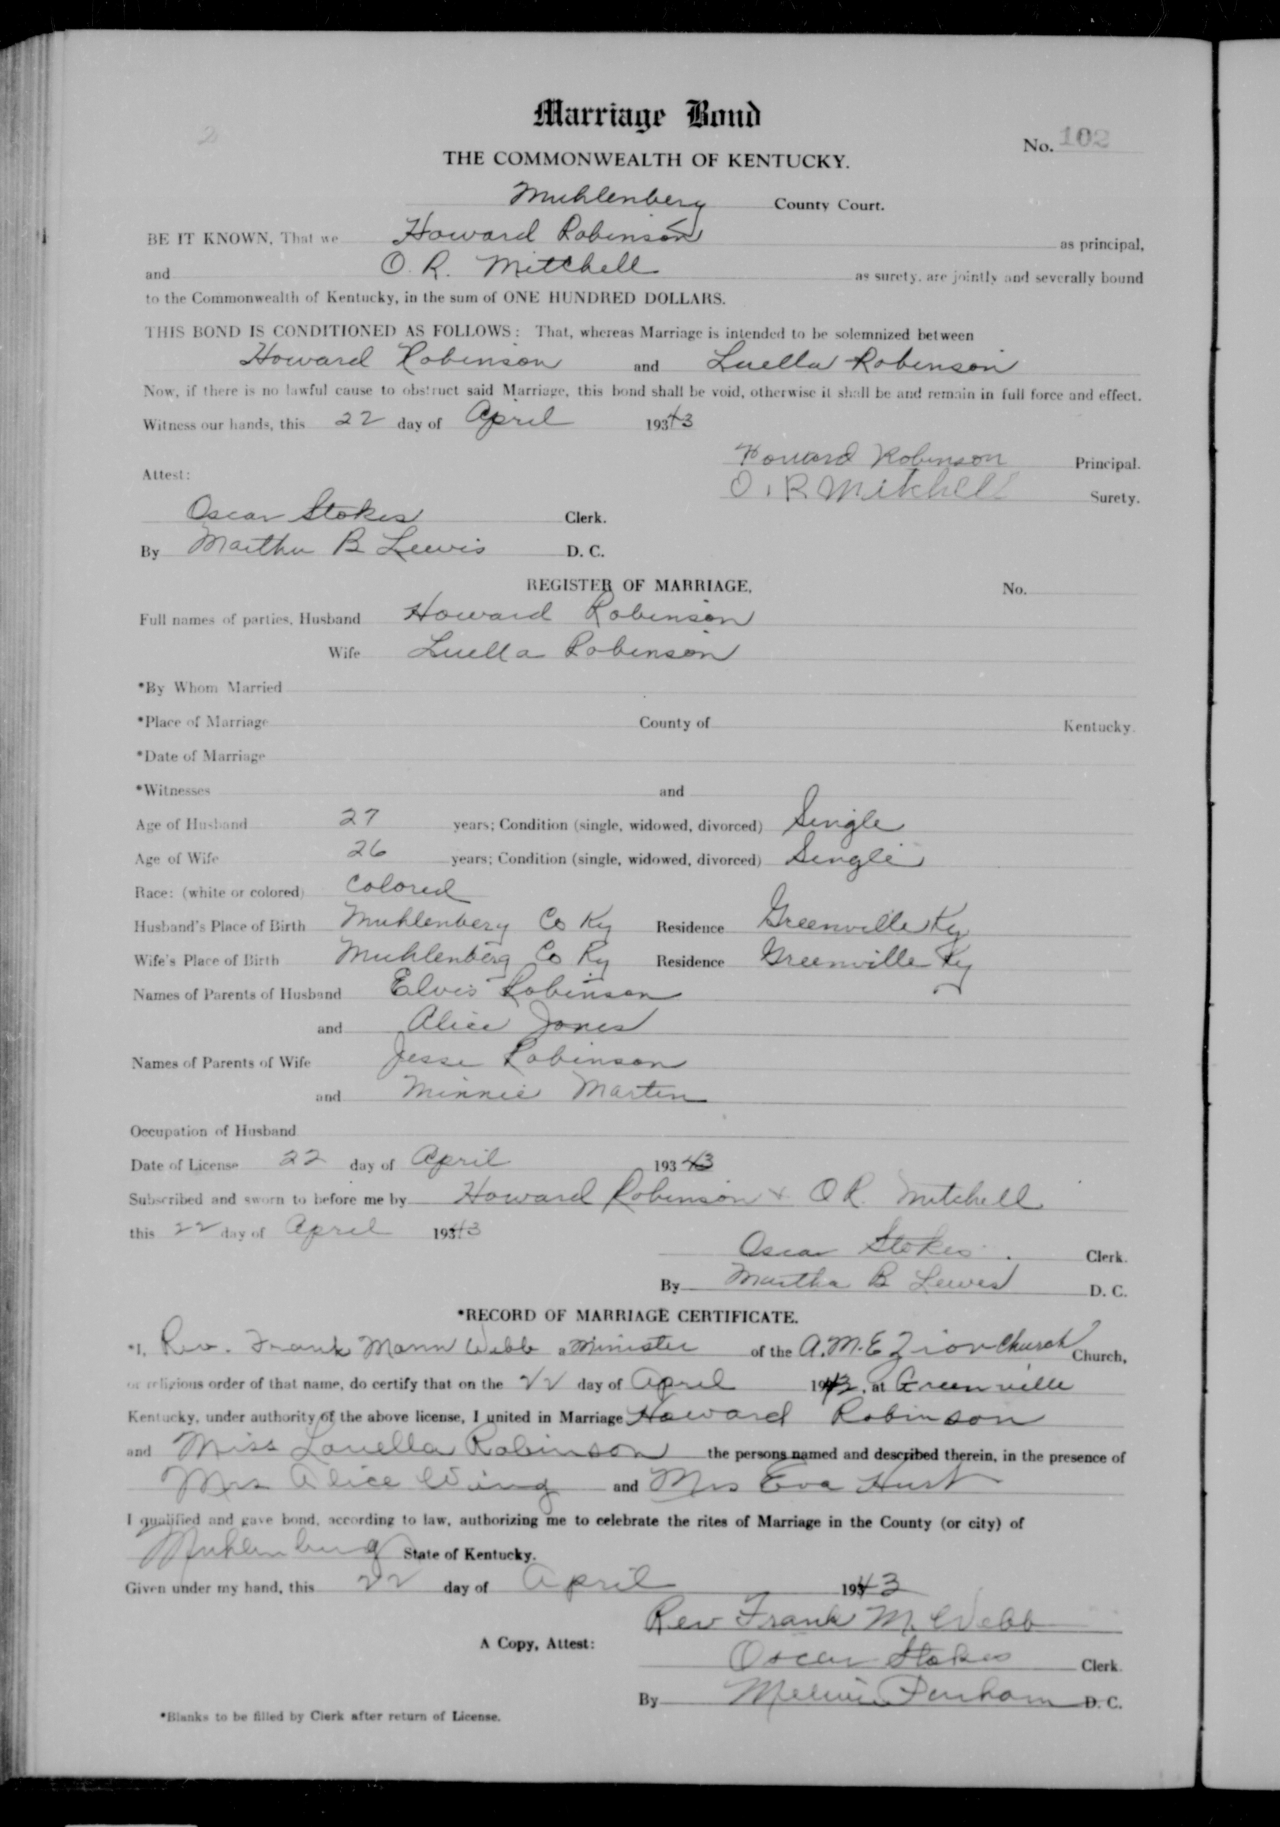 Marriage Bond
No. 102
THE COMMONWEALTH OF KENTUCKY.
Muhlenberg County Court.
BE IT KNOWN, That we Howard Robinson as principal,
and O. R. Mitchell as surety, are jointly and severally bound
to the Commonwealth of Kentucky, in the sum of ONE HUNDRED DOLLARS.
THIS BOND IS CONDITIONED AS FOLLOWS: That, whereas Marriage is intended to be solemnized between
Howard Robinson and Luella Robinson
Now, if there is no lawful cause to obstruct said Marriage, this bond shall be void, otherwise it shall be and remain in full force and effect.
Witness our hands, this 22 day of April 19343
Howard Robinson Principal.
Attest:
O. R Mitchell Surety.
Oscar Stokes Clerk.
By Martha B Lewis D. C.
REGISTER OF MARRIAGE, No.
Full names of parties, Husband Howard Robinson
Wife Luella Robinson
*By Whom Married
*Place of Marriage County of Kentucky.
*Date of Marriage
*Witnesses and
Age of Husband 27 years; Condition (single, widowed, divorced) Single
Age of Wife 26 years; Condition (single, widowed, divorced) Single
Race: (white or colored) Colored
Husband's Place of Birth Muhlenberg Co Ky Residence Greenville Ky
Wife's Place of Birth Muhlenberg Co Ky Residence Greenville Ky
Names of Parents of Husband Elvis Robinson
and Alice Jones
Names of Parents of Wife Jesse Robinson
and Minnie Martin
Occupation of Husband
Date of License 22 day of April 19343
Subscribed and sworn to before me by Howard Robinson + O R. Mitchell
this 22 day of April 19343
Oscar Stokes. Clerk.
By Martha B Lewis D. C.
*RECORD OF MARRIAGE CERTIFICATE.
*I, Rev. Frank Mann Webb a Minister of the A.M.E Zion Church Church,
or religious order of that name, do certify that on the 22 day of April 1943, at Greenville
Kentucky, under authority of the above license, I united in Marriage Howard Robinson
and Miss Louella Robinson the persons named and described therein, in the presence of
Mrs Alice Wing and Mrs Eva Hurt
I qualified and gave bond, according to law, authorizing me to celebrate the rites of Marriage in the County (or city) of
Muhlenburg State of Kentucky.
Given under my hand, this 22 day of April 1943
Rev Frank M. Webb
A Copy, Attest:
Oscar Stokes Clerk.
By D. C.
*Blanks to be filled by Clerk after return of License.